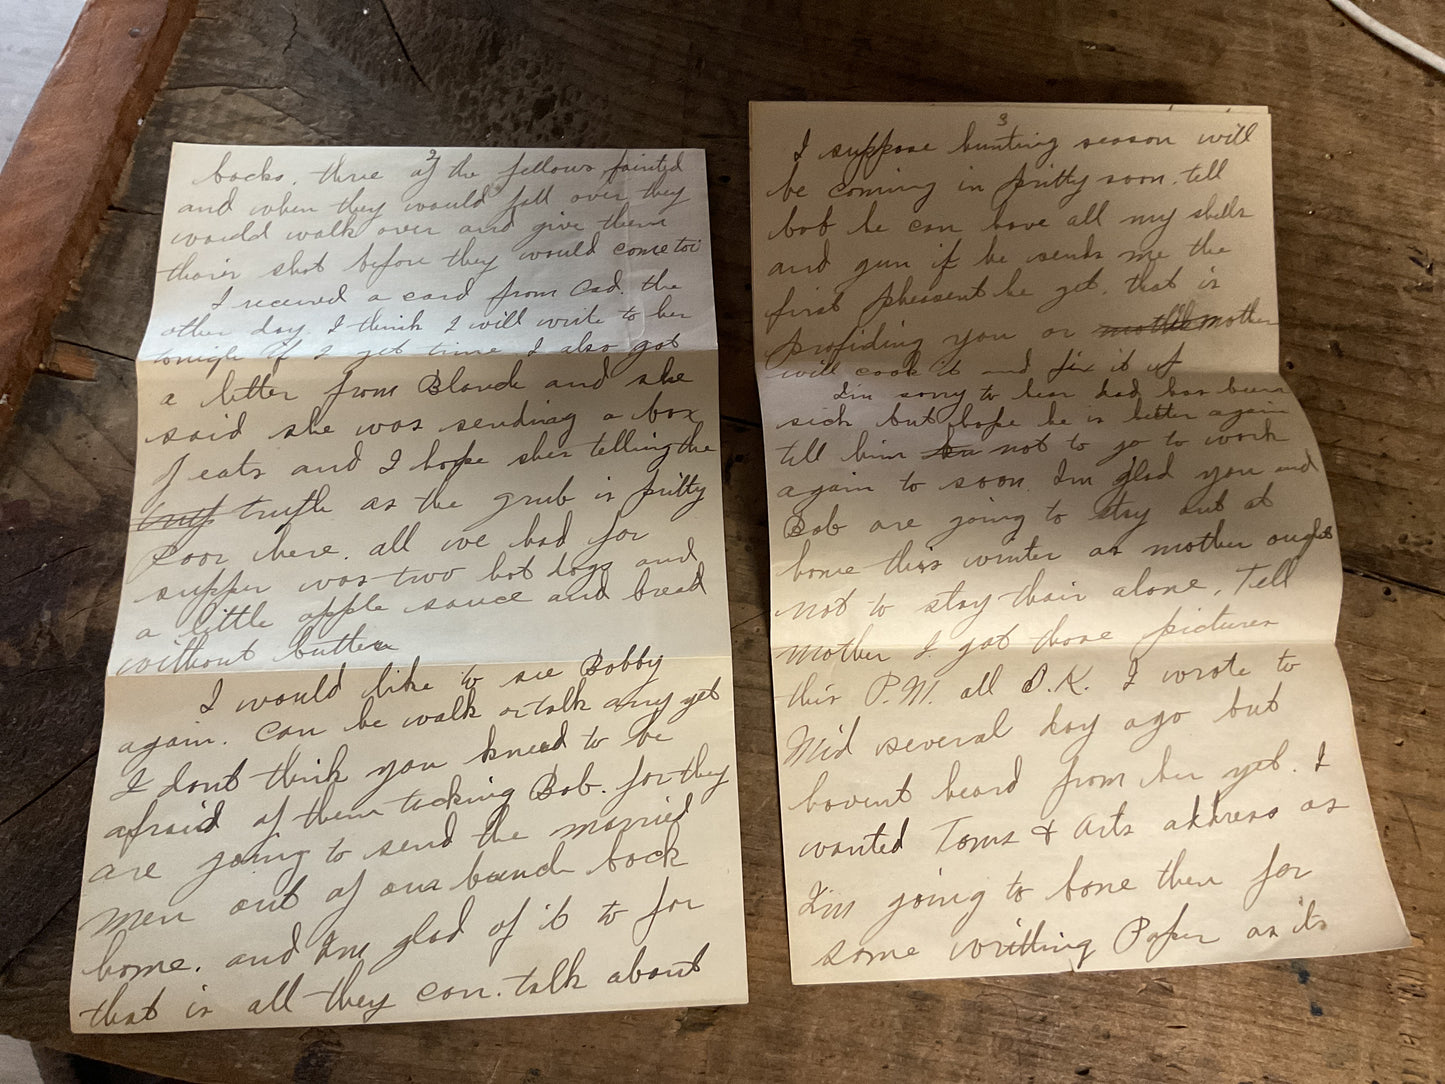 2
backs. three of the fellows fainted
and when they would fall over they
would walk over and give them
thair shot before they would come toi
I received a card from Cad. the
other day. I think I will write to her
tonight if I get time I also got
a letter from Blanch and she
said she was sending a box
of eats and I hope shes telling the
truth as the grub is pritty
Poor here. all we had for
supper was two hot dogs and
a little apple sauce and bread
without butter
I would like to see Bobby
again. Can he walk or talk any yet
I dont think you kneed to be
afraid of them tacking Bob. for they
are going to send the married
men out of our bunch back
home. and Im glad of it to for
that is all they can. talk about
3
I suppose hunting season will
be coming in pritty soon. tell
bob he can have all my shells
and gun if he sends me the
first phesent he get. that is
profiding you or mother
will cook it and fix it up
Im sorry to hear dad has been
sick but hope he is better again
tell him not to go to work
again to soon. Im glad you and
Bob are going to stay out at
home this winter as mother ought
not to stay thair alone. Tell
mother I got those pictures
this P.M. all O.K. I wrote to
Mid several day ago but
havent heard from her yet. I
wanted Toms & Arts address as
Im going to bone them for
some writting Paper as its